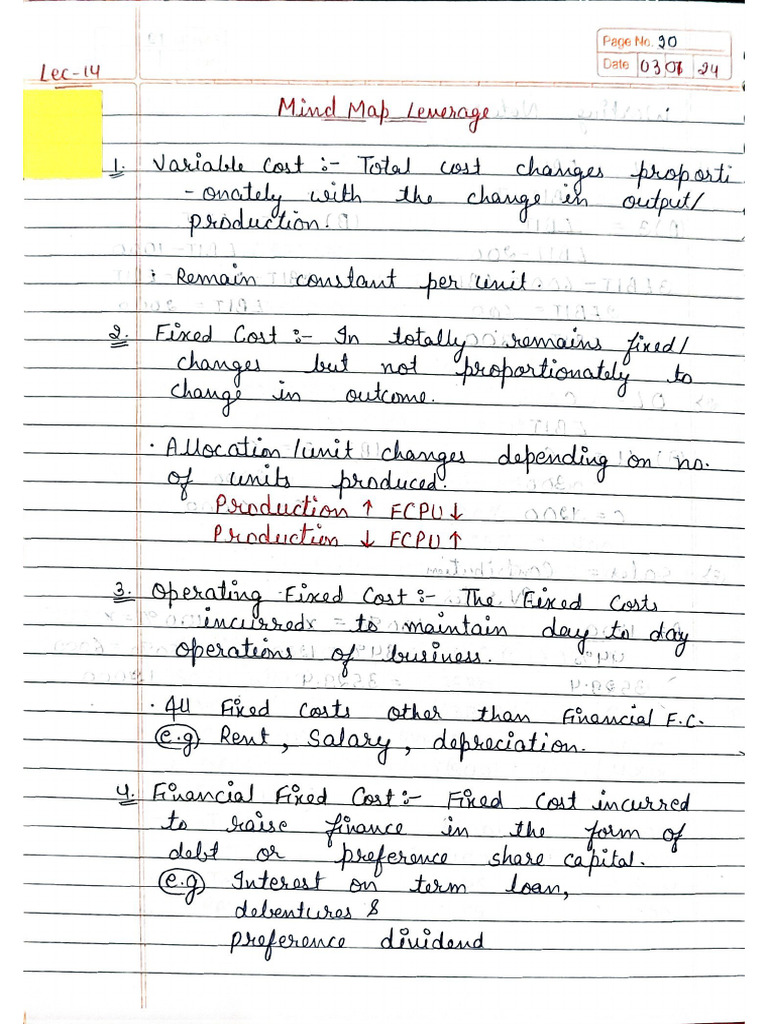 Page No. 30
Date 03 01 24
Lec-14
Mind Map Leverage
1. Variable Cost :- Total cost changes proporti
-onately with the change in output/
production.
: Remain constant per unit.
2. Fixed Cost :- In totally remains fixed/
changes but not proportionately to
change in outcome.
· Allocation/unit changes depending on no.
of units produced.
Production ↑ FCPU ↓
Production ↓ FCPU ↑
3. Operating Fixed Cost :- The Fixed Costs
incurred to maintain day to day
operations of business.
· All Fixed Costs other than Financial F.C.
e.g Rent, Salary, depreciation.
4. Financial Fixed Cost :- Fixed Cost incurred
to raise finance in the form of
debt or preference share capital.
e.g Interest on term loan,
debentures &
preference dividend